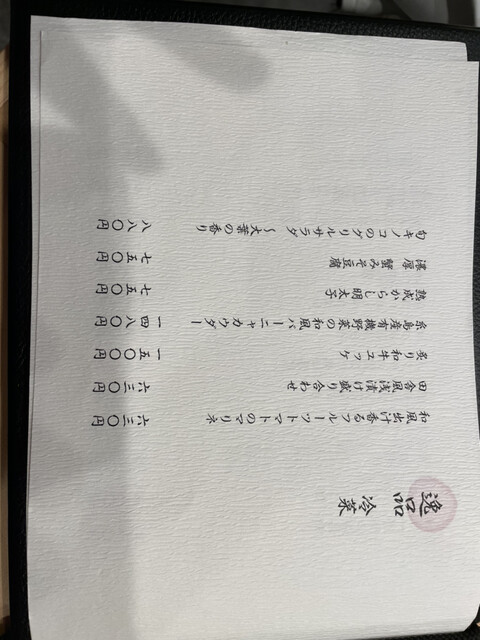 逸品 冷菜
和風出汁香るフルーツトマトのマリネ 六三〇円
田舎風浅漬け盛り合わせ 六三〇円
炙り和牛ユッケ 一五〇〇円
糸島産有機野菜の和風バーニャカウダー 一四八〇円
熟成からし明太子 七五〇円
濃厚 蟹みそ豆腐 七五〇円
旬キノコのグリルサラダ ～大葉の香り 八八〇円